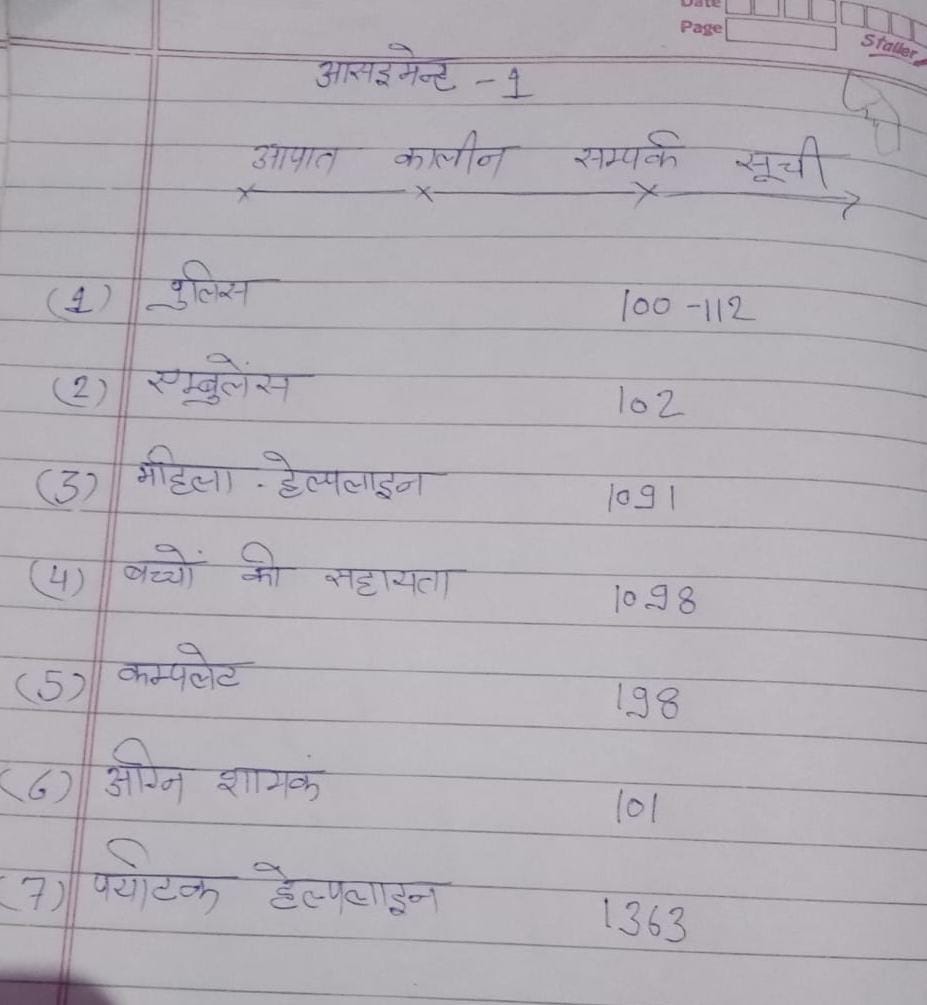 Date
Page
Staller
आसइमेन्ट - 1
आपात कालीन सम्पर्क सूची
(1) पुलिस 100 -112
(2) एम्बुलेंस 102
(3) महिला - हेल्पलाइन 1091
(4) बच्चों की सहायता 1098
(5) कम्पलेट 198
(6) अग्नि शामकं 101
(7) पर्याटक हेल्पलाइन 1363